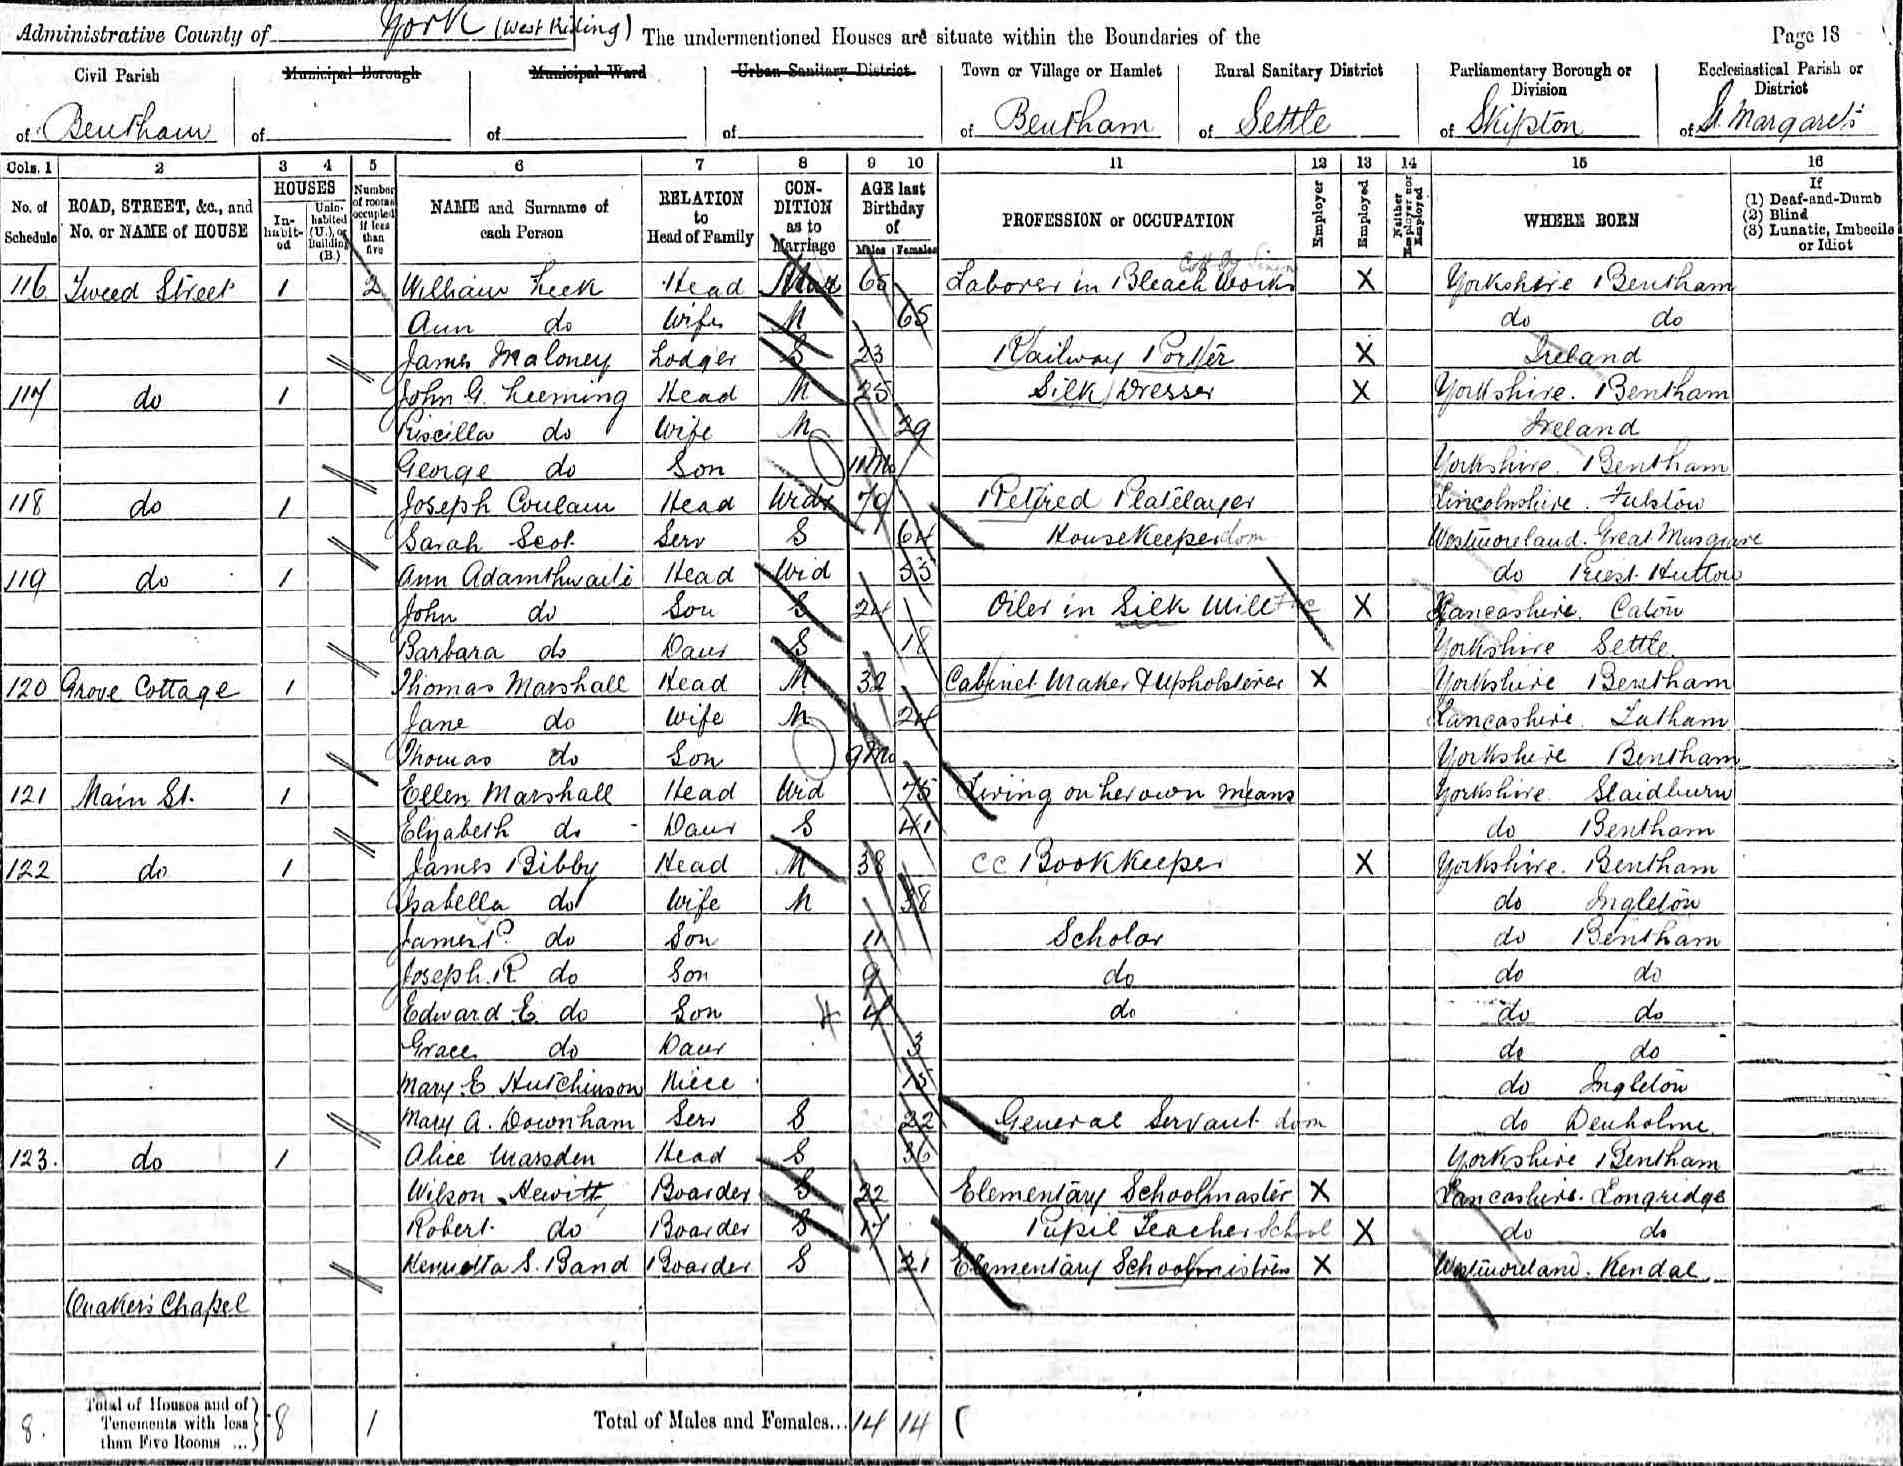 Administrative County of York (West Riding) The undermentioned Houses are situate within the Boundaries of the Page 18
Civil Parish Municipal Borough Municipal Ward Urban Sanitary District Town or Village or Hamlet Rural Sanitary District Parliamentary Borough or Division Ecclesiastical Parish or District
of Bentham of of of of Bentham of Settle of Skipton of St. Margaret's
Cols. 1 2 3 4 5 6 7 8 9 10 11 12 13 14 15 16
No. of Schedule ROAD, STREET, &c., and No. or NAME of HOUSE HOUSES Inhabited Uninhabited (U.), or Building (B.) Number of rooms occupied if less than five NAME and Surname of each Person RELATION to Head of Family CONDITION as to Marriage AGE last Birthday of Males Females PROFESSION or OCCUPATION Employer Employed Neither Employer nor Employed WHERE BORN If (1) Deaf-and-Dumb (2) Blind (3) Lunatic, Imbecile or Idiot
116 Tweed Street 1 2 William Leek Head Mar 65 Laborer in Bleach Works X Yorkshire Bentham
Ann do Wife M 65 do do
James Maloney Lodger S 23 Railway Porter X Ireland
117 do 1 John G. Leeming Head M 25 Silk Dresser X Yorkshire. Bentham
Priscilla do Wife M 29 Ireland
George do Son 11 Mo Yorkshire. Bentham
118 do 1 Joseph Coulam Head Widr 79 Retired Platelayer Lincolnshire. Fulstow
Sarah Scot Serv S 64 Housekeeper dom Westmoreland. Great Musgrave
119 do 1 Ann Adamthwaite Head Wid 53 do Priest Hutton
John do Son S 24 Oiler in Silk Mill X Lancashire. Caton
Barbara do Daur S 18 Yorkshire Settle
120 Grove Cottage 1 Thomas Marshall Head M 32 Cabinet Maker & Upholsterer X Yorkshire Bentham
Jane do Wife M 24 Lancashire. Tatham
Thomas do Son 9 Mo Yorkshire Bentham
121 Main St. 1 Ellen Marshall Head Wid 75 Living on her own means Yorkshire Slaidburn
Elizabeth do Daur S 41 do Bentham
122 do 1 James Bibby Head M 38 CC Bookkeeper X Yorkshire. Bentham
Isabella do Wife M 38 do Ingleton
James P. do Son 11 Scholar do Bentham
Joseph. R do Son 9 do do do
Edward. E. do Son 4 4 do do do
Grace do Daur 3 do do
Mary. E Hutchinson Niece 15 do Ingleton
Mary A. Downham Serv S 22 General Servant dom do Denholme
123. do 1 Alice Marsden Head S 36 Yorkshire Bentham
Wilson Hewitt Boarder S 22 Elementary Schoolmaster X Lancashire. Longridge
Robert do Boarder S 17 Pupil Teacher School X do do
Henrietta S. Band Boarder S 21 Elementary Schoolmistress X Westmoreland. Kendal
Quaker's Chapel
8. Total of Houses and of Tenements with less than Five Rooms ... 8 1 Total of Males and Females... 14 14